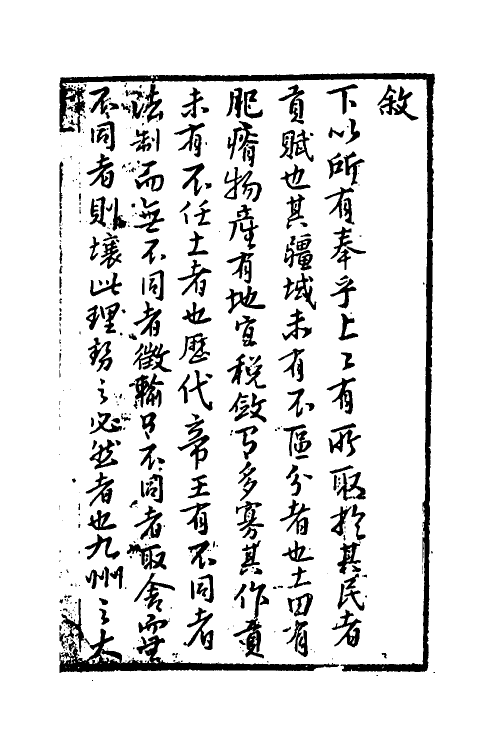 敘
下以所有奉乎上〻有所取於其民者
貢賦也其疆域未有不區分者也土田有
肥瘠物產有地宜稅斂有多寡其作貢
未有不任土者也歷代帝王有不同者
法制而無不同者徵輸有不同者取舍而無
不同者則壤此理勢之必然者也九州之大